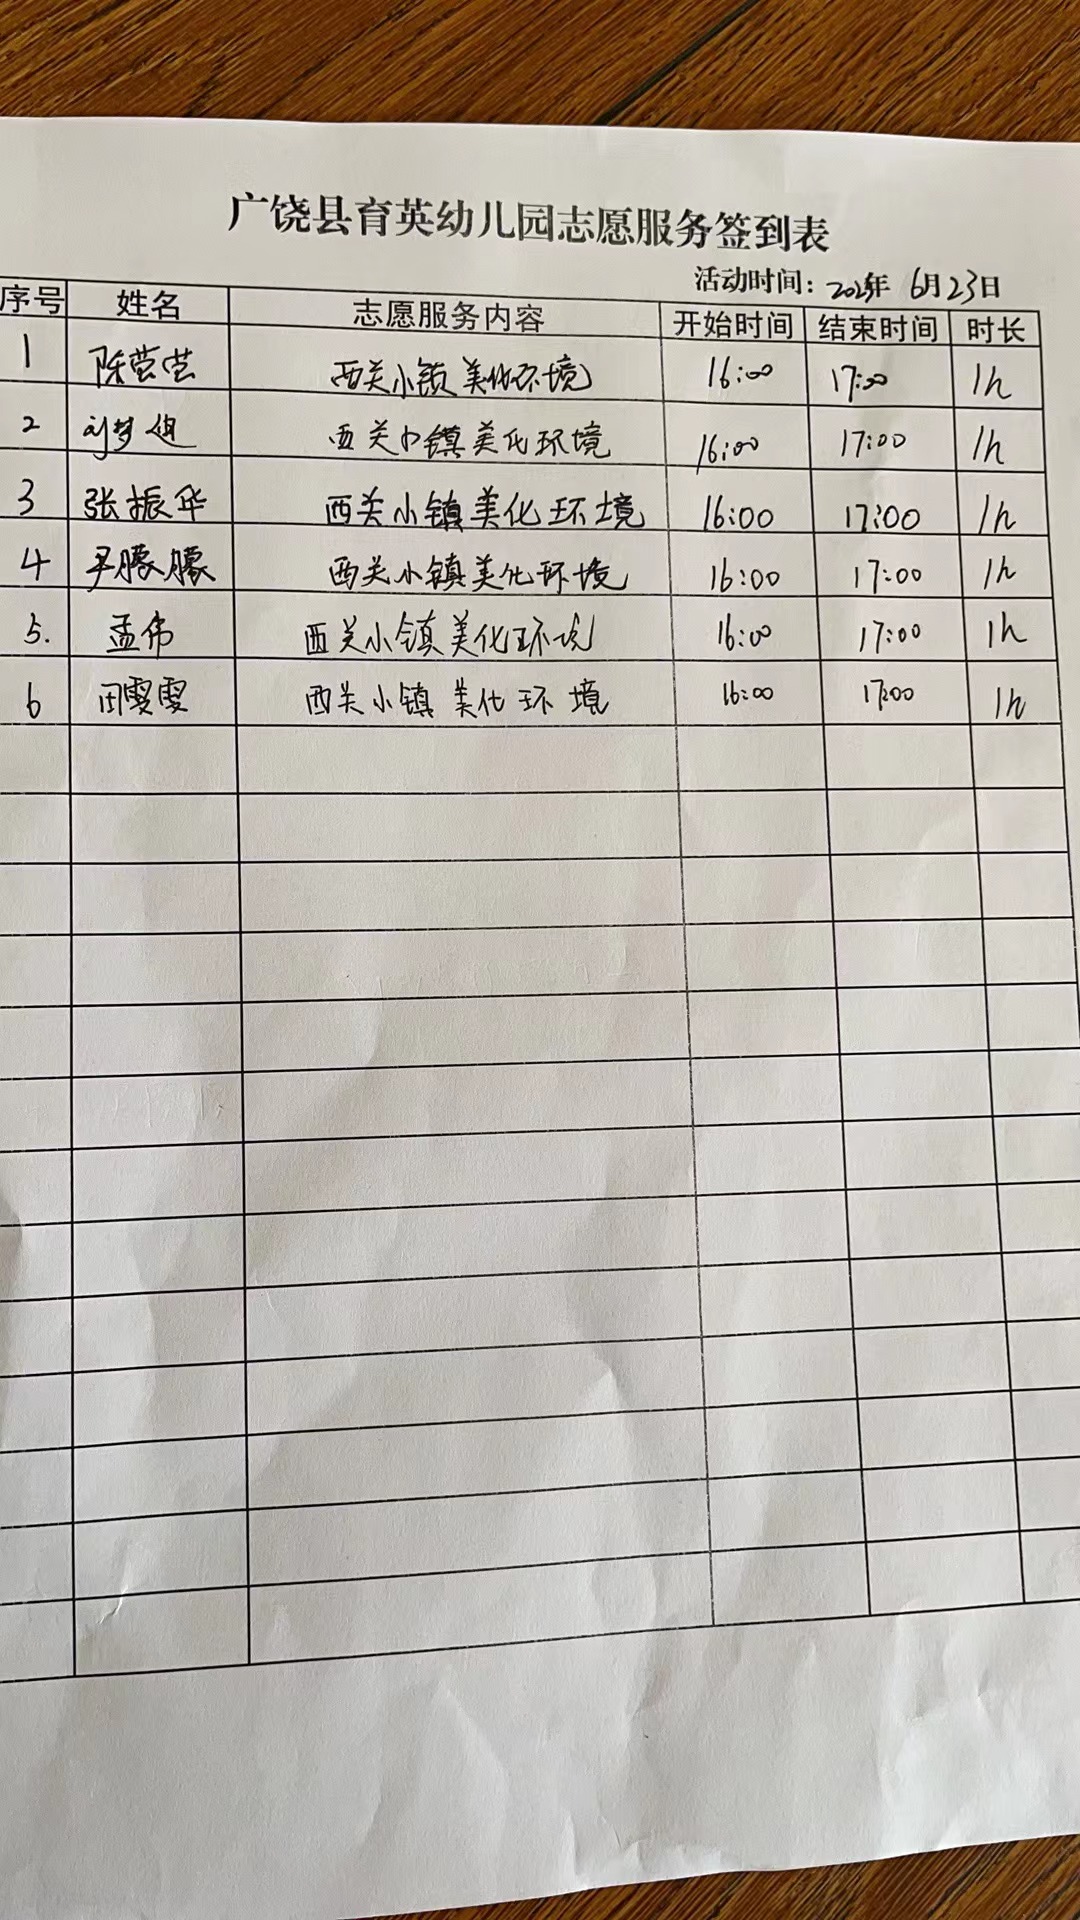 广饶县育英幼儿园志愿服务签到表
活动时间：2023年 6月23日
序号 姓名 志愿服务内容 开始时间 结束时间 时长
1 陈芸芸 西关小镇美化环境 16:00 17:00 1h
2 西关小镇美化环境 16:00 17:00 1h
3 张振华 西关小镇美化环境 16:00 17:00 1h
4 尹朦朦 西关小镇美化环境 16:00 17:00 1h
5. 孟伟 西关小镇美化环境 16:00 17:00 1h
6 田雯雯 西关小镇美化环境 16:00 17:00 1h